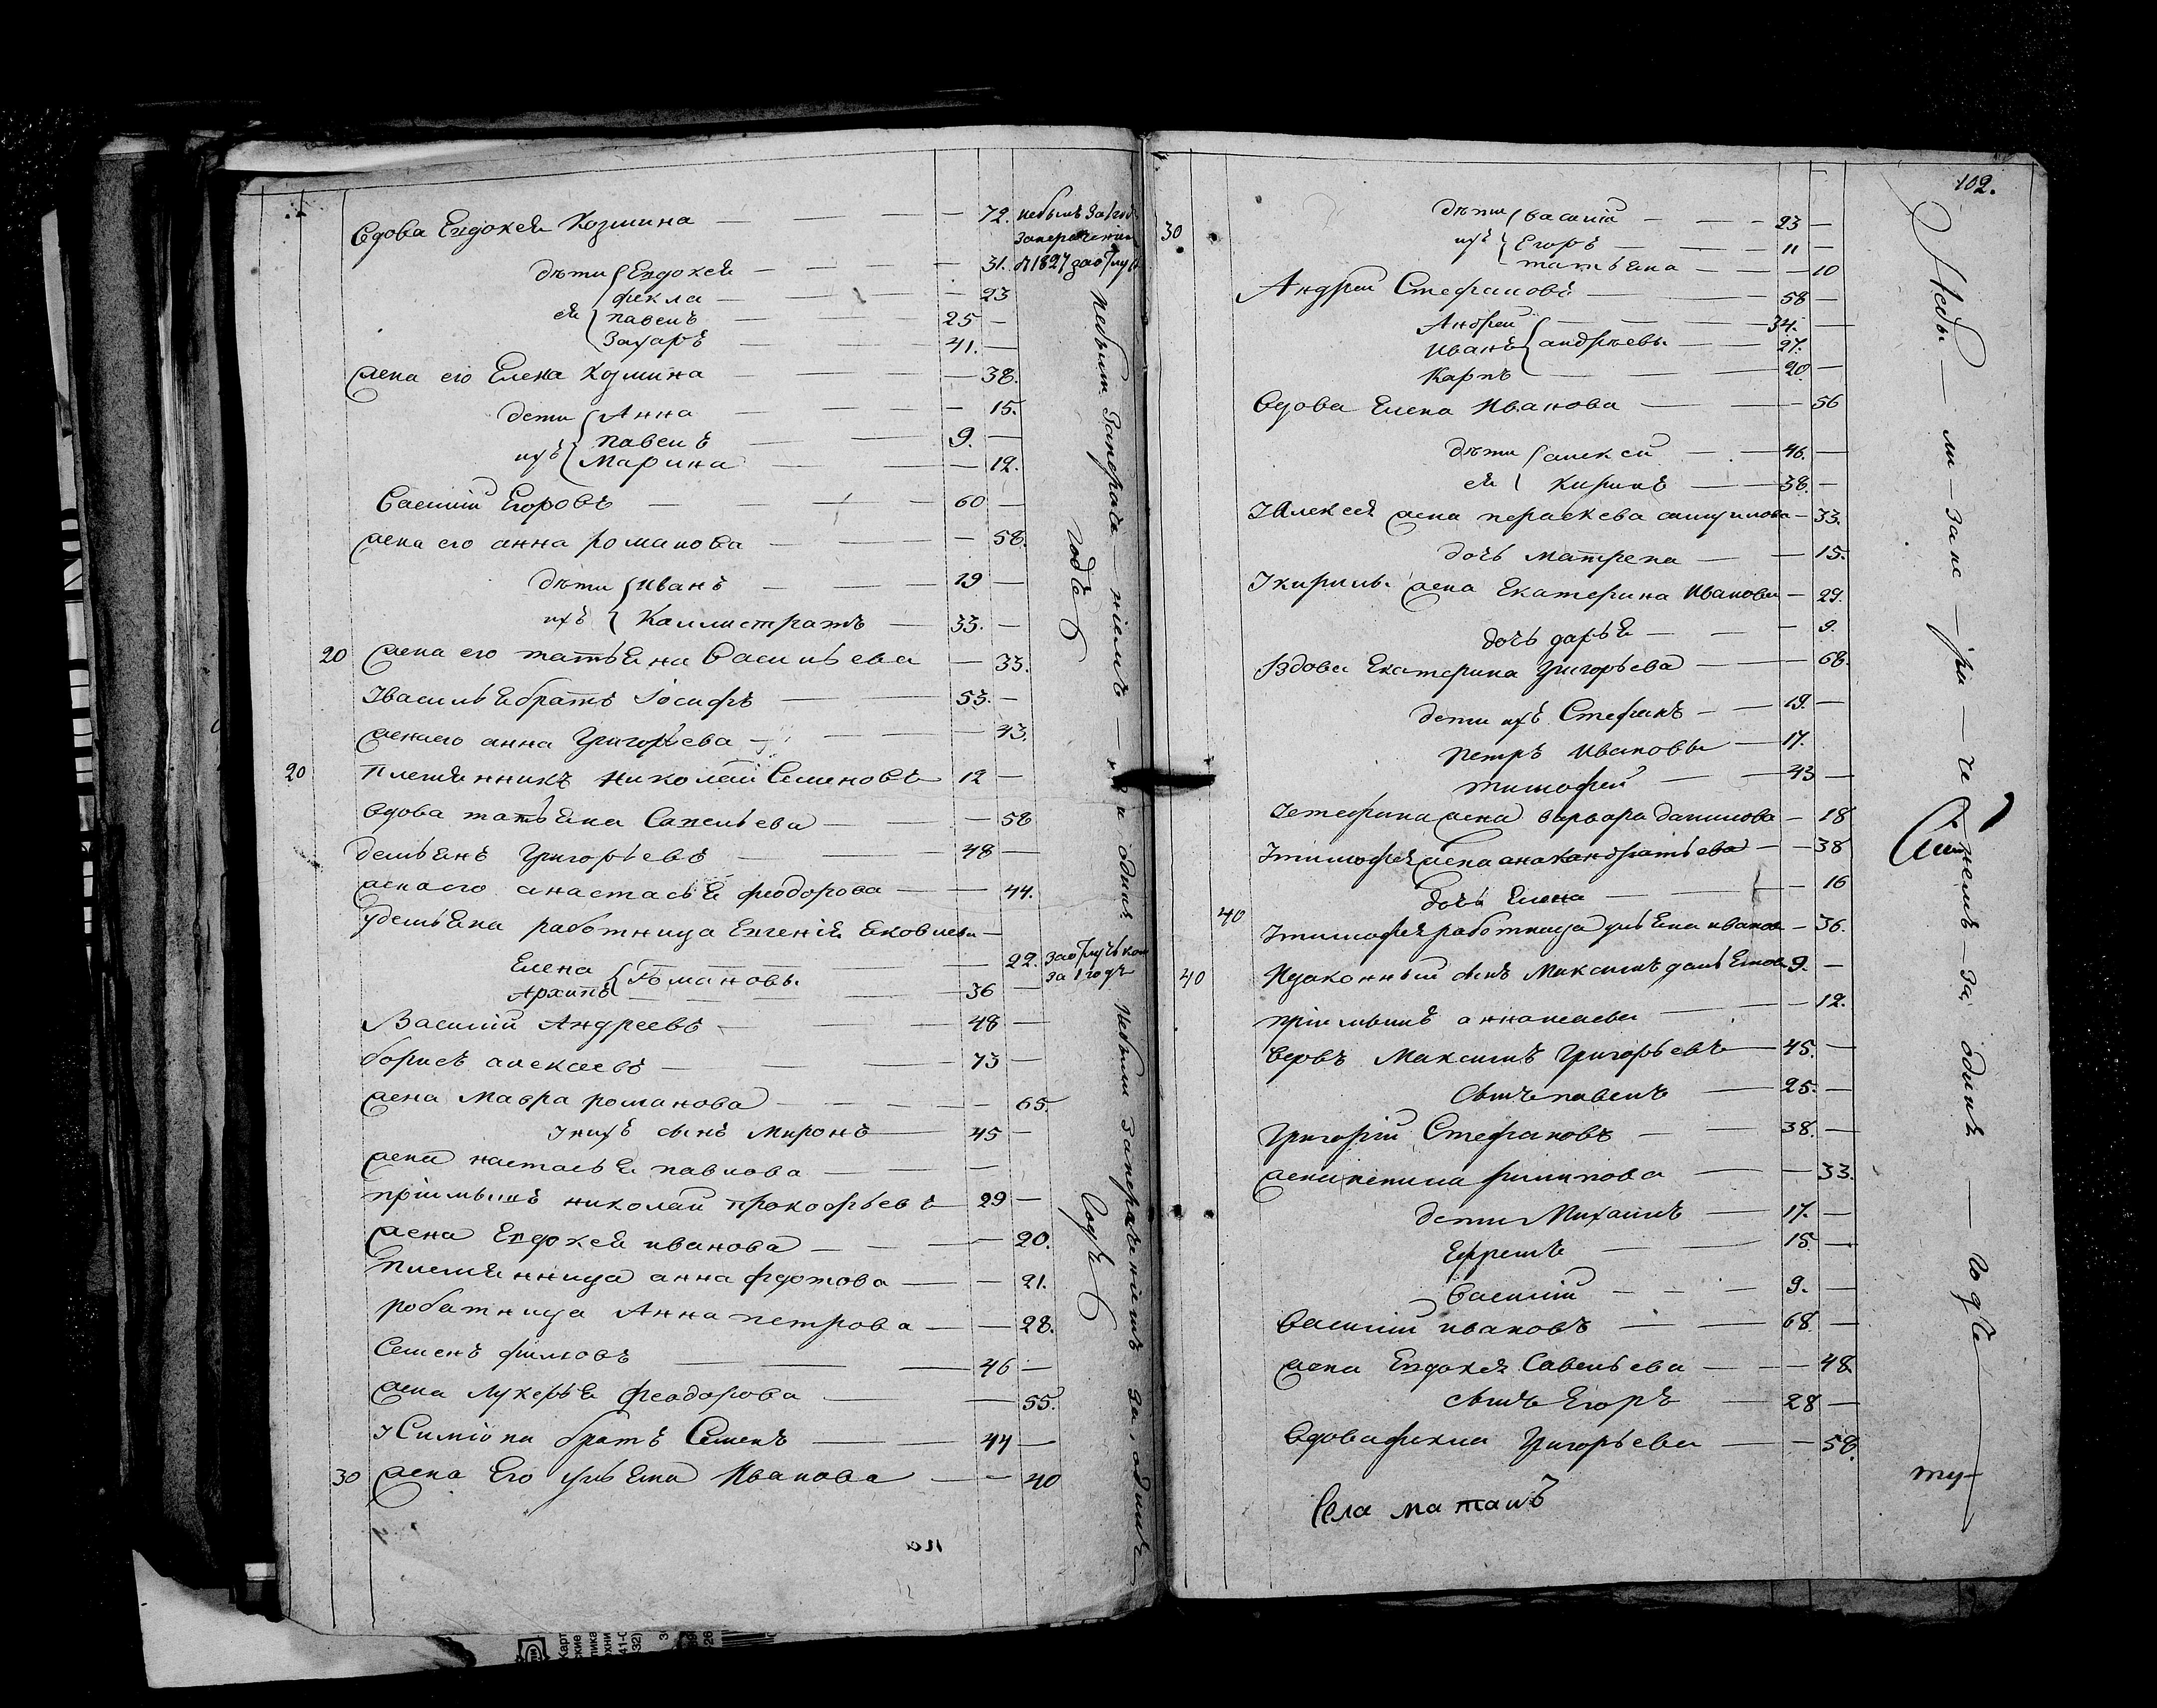 Вдова Евдокея Козмина — 72. небылъ За 1 год
За нерачением
дѣти Евдокея — 31. 1827
фекла — 23
ей павелъ — 25 —
Захаръ — 41. —
жена его Елена Козмина — 38.
дети Анна — 15.
павелъ — 9. —
ихъ Марина — 12.
Василий Егоровъ — 60 —
жена его анна романова — 58.
дѣти Иванъ — 19 —
ихъ Каллистратъ — 33. —
20 жена его татьяна Васильева — 33.
У василья братъ Іосифъ — 53. —
жена его анна Григорьева — 43.
20 племянникъ николай Семеновъ 12 —
вдова татьяна Савельева — 58
демьянъ Григорьевъ — 48 —
жена его анастасья феодорова — 44.
у демьяна работница Евгенія Яковлева —
Елена — 22.
за 1 годъ
Архипъ Романовы — 36 —
Василий Андреевъ — 48 —
борисъ алексеевъ — 73 —
жена Мавра романова — 65.
У нихъ сынъ Миронъ — 45 —
жена настасья павлова —
пріимышъ николай прокофьевъ 29 —
жена Евдокея иванова — 20.
племянница анна федотова — 21.
роботница Анна петрова — 28.
Семенъ — 46 —
жена лукерья феодорова — 55.
У Симіона братъ Семенъ — 44 —
30 жена Его ульяна Иванова — 40
небыли За нерачениемъ
годъ
Небыли За нерачениемъ За одинъ
годъ
102.
30 дѣти василий — 23 —
ихъ Егоръ — 11 —
татьяна — 10
Андрей Стефановъ — 58 —
Андрей — 34. —
Иванъ андреевы — 27.
Карпъ — 20. —
Вдова Елена Иванова — 56
дѣти алексей — 46. —
ей Кирилъ — 38. —
У Алексея жена параскева — 33.
дочь матрена — 15.
У кирилы жена Екатерина Иванова — 29.
дочь дарья — 9.
Вдова Екатерина Григорьева — 68.
дети ихъ Стефанъ — 19. —
петръ Ивановы — 17.
тимофей — 43 —
У стефана жена варвара данилова — 18
У тимофея жена — 38
дочь Елена — 16
40 У тимофея работница ульяна иванов — 36.
40 Незаконный сынъ Максимъ 9. —
пріимышъ анна — 12.
Вдовъ Максимъ Григорьевъ — 45. —
сынъ павелъ — 25. —
Григорий Стефановъ — 38. —
жена филипова — 33.
дети Михаилъ — 17. —
Ефремъ — 15. —
Василий — 9. —
Василий ивановъ — 68 —
жена Евдокея Савельева — 48.
сынъ Егоръ — 28 —
Вдова фекла Григорьева — 58.
Села маташъ
Небы — ли — за не — ра — че — ніемъ — за одинъ — годъ
ту